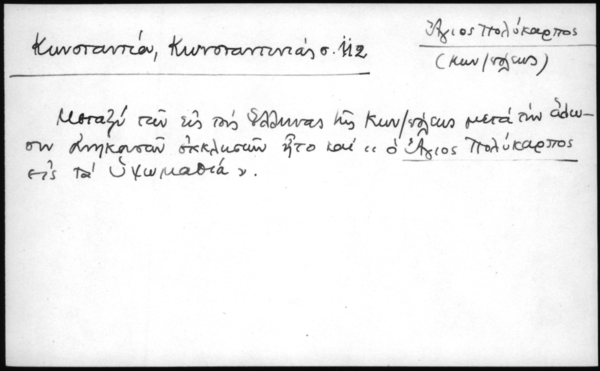 Κωνσταντία, Κωνσταντινιάς σ. 112
Ἅγιος Πολύκαρπος
(Κων/πόλεως)
Μεταξύ τῶν εἰς τούς Ἕλληνας τῆς Κων/πόλεως μετά τήν ἅλω-
σιν ἀνηκουσῶν ἐκκλησιῶν ἦτο καί « ὁ Ἅγιος Πολύκαρπος
εἰς τά Ὑψωμαθιά ».